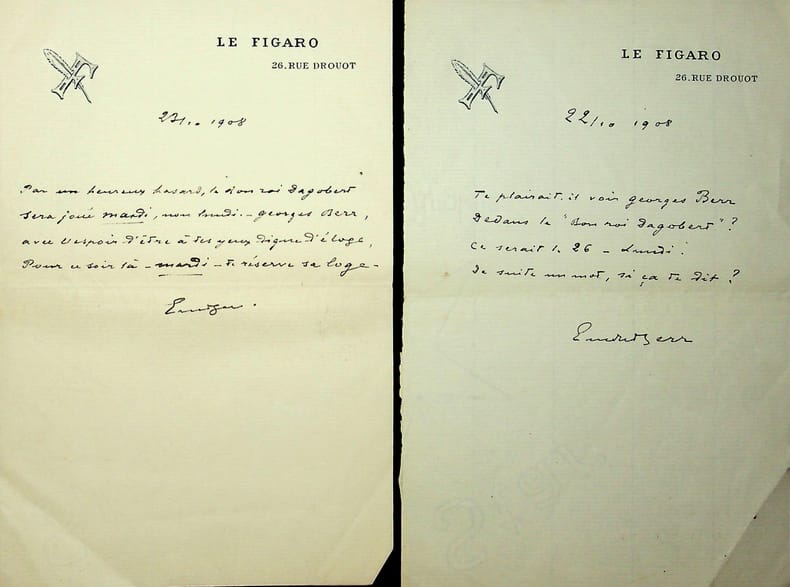 LE FIGARO
26, RUE DROUOT
23/10 1908
Par un heureux hasard, le Bon roi Dagobert
Sera joué mardi, non lundi. - georges Berr,
avec l'espoir d'être à tes yeux digne d'éloge,
Pour ce soir là - mardi - te réserve sa loge -
LE FIGARO
26, RUE DROUOT
22/10 1908
Te plairait-il voir georges Berr
Dedans le "Bon roi Dagobert" ?
Ce serait le 26 - Lundi !
De suite un mot, si ça te dit ?
Emile Berr